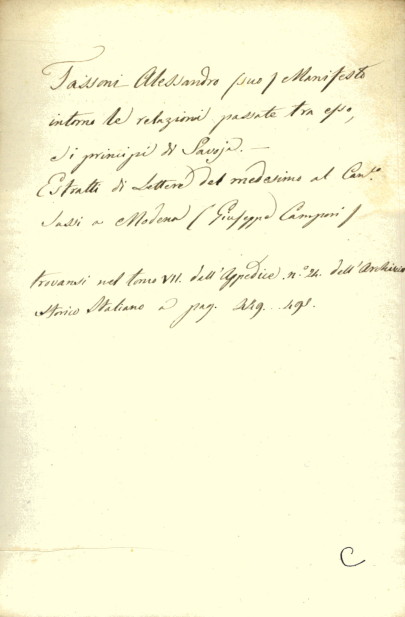 Tassoni Alessandro (suo) Manifesto
intorno le relazioni passate tra esso,
e i principi di Savoja. —
Estratti di Lettere del medesimo al Can.co
Sassi a Modena (Giuseppe Campori)
trovansi nel tomo VII. dell'Appedice n.o 24. dell'Archivio
Storico Italiano a pag. 449..491.
C